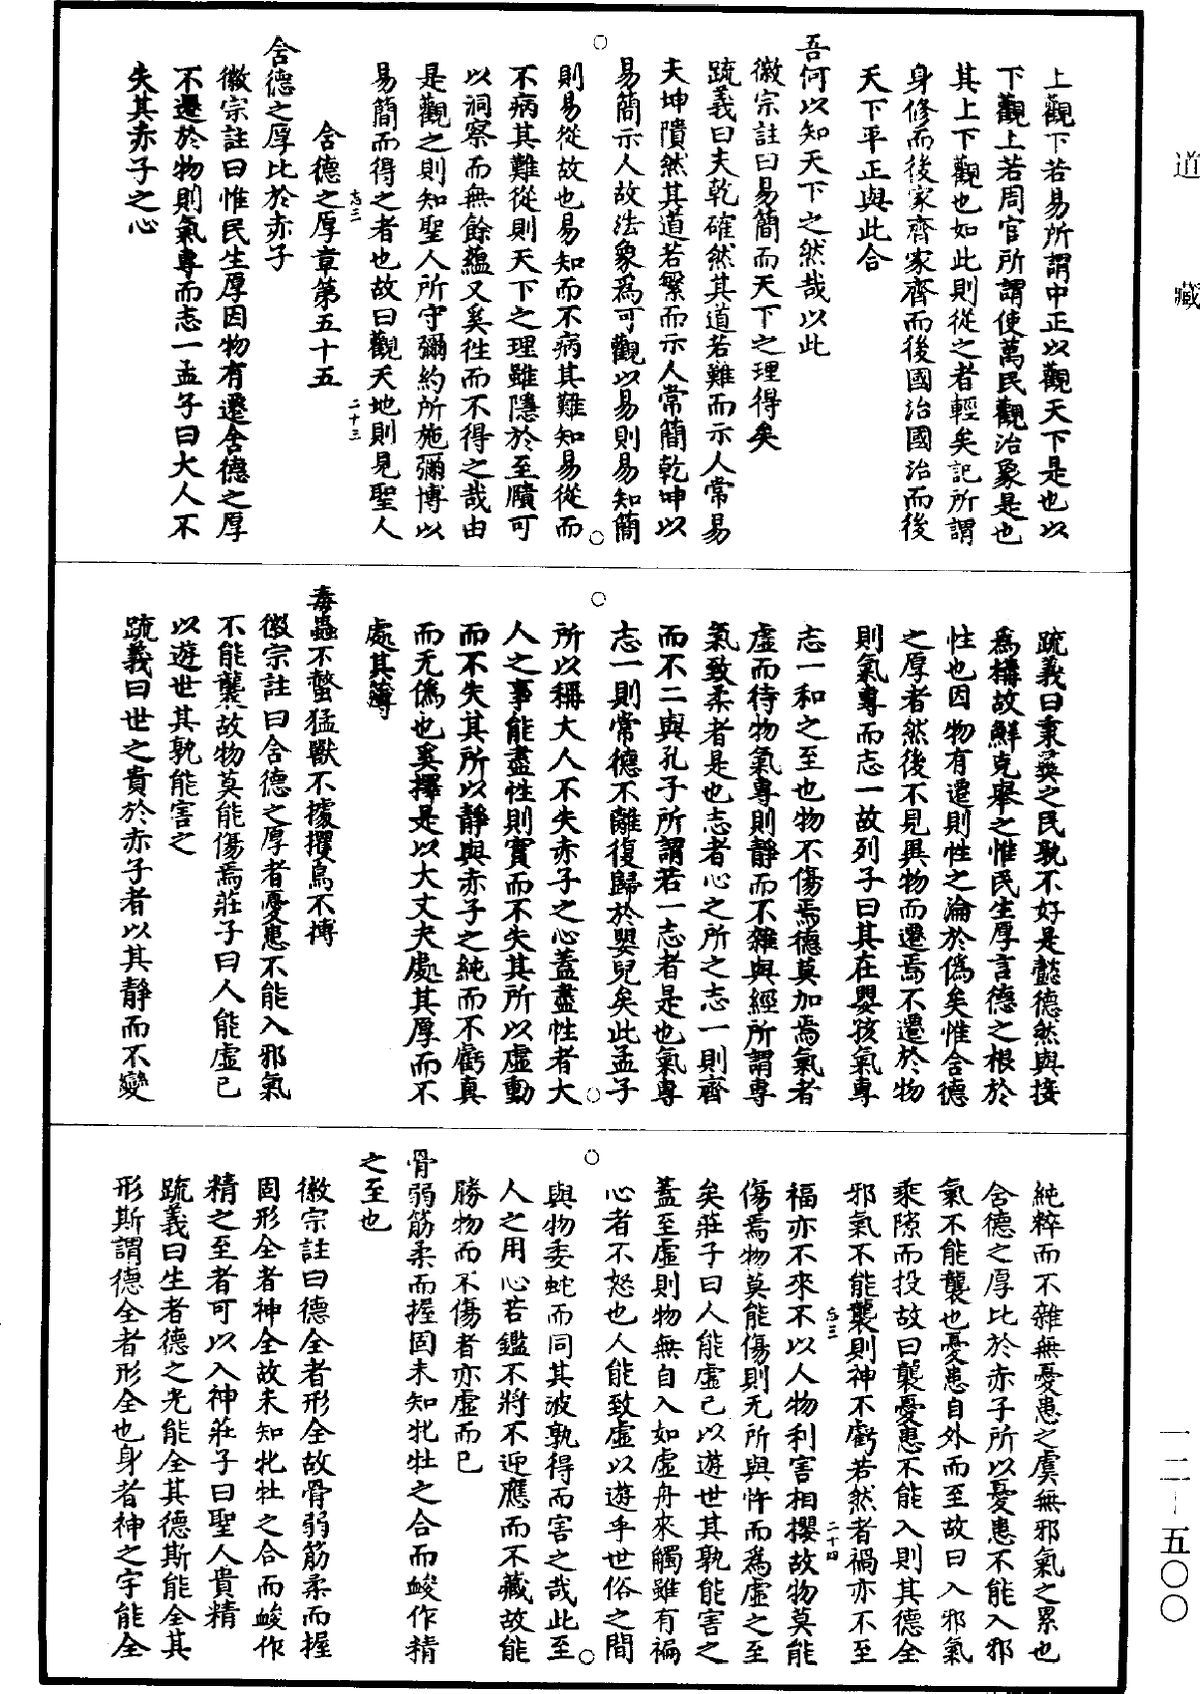 道藏
上觀下若易所謂中正以觀天下是也以
下觀上若周官所謂使萬民觀治象是也
其上下觀也如此則從之者輕矣記所謂
身修而後家齊家齊而後國治國治而後
天下平正與此合
吾何以知天下之然哉以此
徽宗註曰易簡而天下之理得矣
疏義曰夫乾確然其道若難而示人常易
夫坤隤然其道若繁而示人常簡乾坤以
易簡示人故法象為可觀以易則易知簡
則易從故也易知而不病其難知易從而
不病其難從則天下之理雖隱於至賾可
以洞察而無餘蘊又奚徃而不得之哉由
是觀之則知聖人所守彌約所施彌博以
易簡而得之者也故曰觀天地則見聖人
忘三 二十三
含德之厚章第五十五
含德之厚比於赤子
徽宗註曰惟民生厚因物有遷含德之厚
不遷於物則氣專而志一孟子曰大人不
失其赤子之心
疏義曰秉彞之民孰不好是懿德然與接
為構故鮮克舉之惟民生厚言德之根於
性也因物有遷則性之淪於偽矣惟含德
之厚者然後不見異物而遷焉不遷於物
則氣專而志一故列子曰其在嬰孩氣專
志一和之至也物不傷焉德莫加焉氣者
虛而待物氣專則靜而不雜與經所謂專
氣致柔者是也志者心之所之志一則齊
而不二與孔子所謂若一志者是也氣專
志一則常德不離復歸於嬰兒矣此孟子
所以稱大人不失赤子之心蓋盡性者大
人之事能盡性則實而不失其所以虛動
而不失其所以靜與赤子之純而不虧真
而无偽也奚擇是以大丈夫處其厚而不
處其薄
毒蟲不螫猛獸不據攫鳥不搏
徽宗註曰含德之厚者憂患不能入邪氣
不能襲故物莫能傷焉莊子曰人能虛己
以遊世其孰能害之
疏義曰世之貴於赤子者以其靜而不變
純粹而不雜無憂患之虞無邪氣之累也
含德之厚比於赤子所以憂患不能入邪
氣不能襲也憂患自外而至故曰入邪氣
乘隙而投故曰襲憂患不能入則其德全
邪氣不能襲則神不虧若然者禍亦不至
忘三 二十四
福亦不來不以人物利害相攖故物莫能
傷焉物莫能傷則无所與忤而為虛之至
矣莊子曰人能虛己以遊世其孰能害之
蓋至虛則物無自入如虛舟來觸雖有褊
心者不怒也人能致虛以遊乎世俗之間
與物委蛇而同其波孰得而害之哉此至
人之用心若鑑不將不迎應而不藏故能
勝物而不傷者亦虛而已
骨弱筋柔而握固未知牝牡之合而峻作精
之至也
徽宗註曰德全者形全故骨弱筋柔而握
固形全者神全故未知牝牡之合而峻作
精之至者可以入神莊子曰聖人貴精
疏義曰生者德之光能全其德斯能全其
形斯謂德全者形全也身者神之宇能全
一二-五〇〇